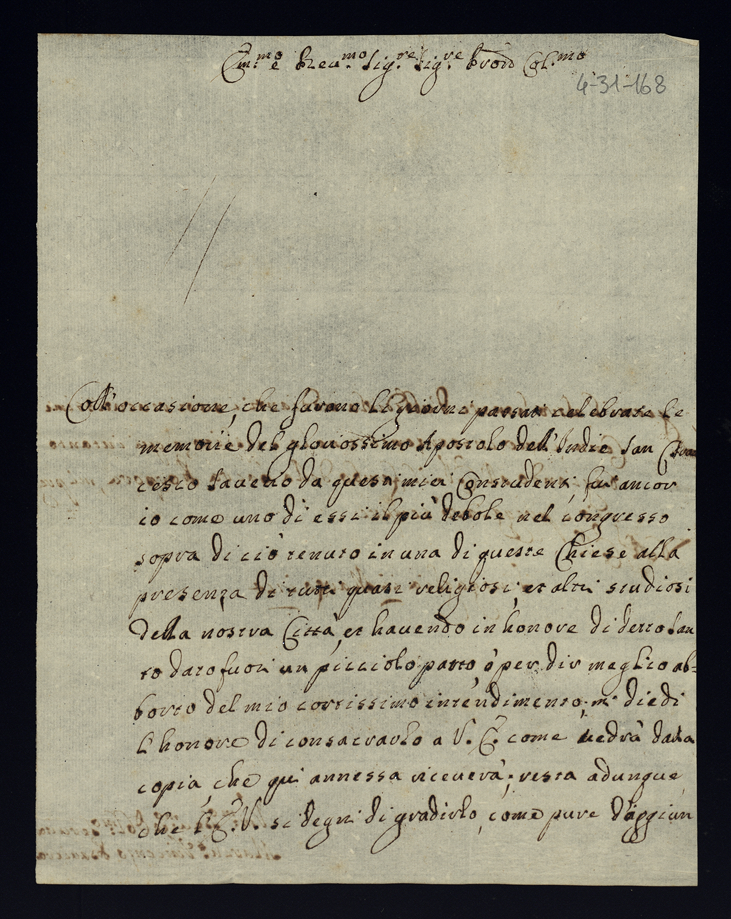 Em.mo e Rev.mo Sig.re Sig.re Prōn Col.mo
4-31-168
Coll'occasione, che furono li giorni passati celebrate le
memorie del gloriosissimo Apostolo dell'Indie San Fran
cesco Saverio da questi miei Constudenti, fui ancor
io come uno di essi il più debole nel congresso
sopra di ciò tenuto in una di queste Chiese alla
presenza di tutti quasi religiosi, et altri studiosi
della nostra Città, et havendo in honore di detto San
to dato fuori un picciolo parto, ò per dir meglio ab-
borto del mio cortissimo intendimento, mi diedi
l'honore di consacrarlo a V. E. come vedrà dalla
copia, che qui annessa riceverà; resta adunque,
che l'E. V. si degni di gradirlo, come pure d'aggiun